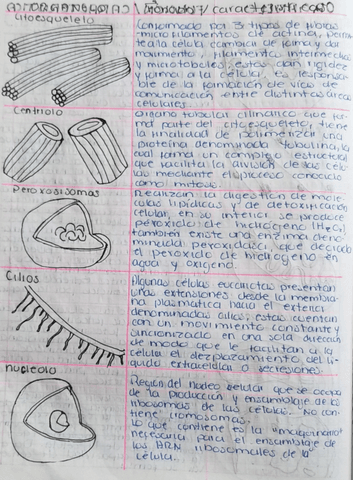 Citoesqueleto
Conformado por 3 tipos de fibras
microfilamentos de actina, permi-
te a la célula cambiar de forma y dar
movimiento, filamento intermedio
y microtubolos estos dan rigidez
y forma a la célula, es responsa-
ble de la formación de vías de
comunicación entre distintas áreas
celulares.
Centriolo
organo tubular cilíndrico que for
ma parte del citoesqueleto, tiene
la finalidad de polimerizar una
proteína denominada tubulina, la
cual forma un complejo estructural
que facilita la división de las celu-
las mediante el proceso conocido
como mitosis.
Peroxosisomas
Realizan la digestión de molé-
culas lipídicas y de detoxificación
celular, en su interior se produce
peróxido de hidrogeno (H2O2)
también existe una enzima deno-
minada peroxidasa, que
el peroxido de hidrogeno en
agua y oxigeno.
Cilios
Algunas células eucariotas presentan
unas extensiones desde la membra-
na plasmatica hacia el exterior
denominadas cilios; estas cuentan
con un movimiento constante y
sincronizado en una sola dirección
de modo que le facilitan a la
célula el desplazamiento del li-
quido extracelular o secresiones.
nucleolo
Región del núcleo celular que se ocupa
de la producción y ensamblaje de los
ribosomas de las células. No con-
tiene cromosomas.
Lo que contiene es la "maquinaria"
necesaria para el ensamblaje de
los ARN ribosomales de la
célula.